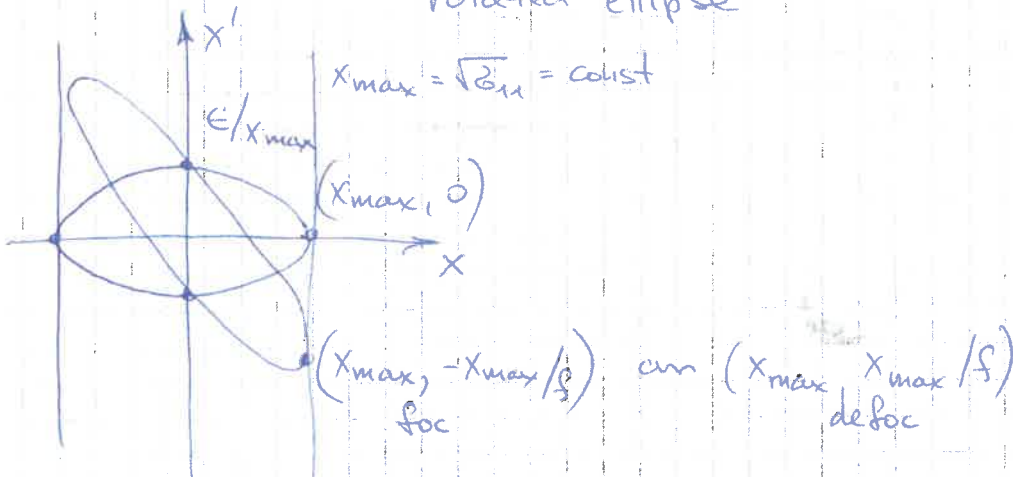 rotated ellipse
x'
x_max = √σ_11 = const
ϵ/x_max
(x_max, 0)
x
(x_max, -x_max/f) or (x_max, x_max/f)
foc defoc